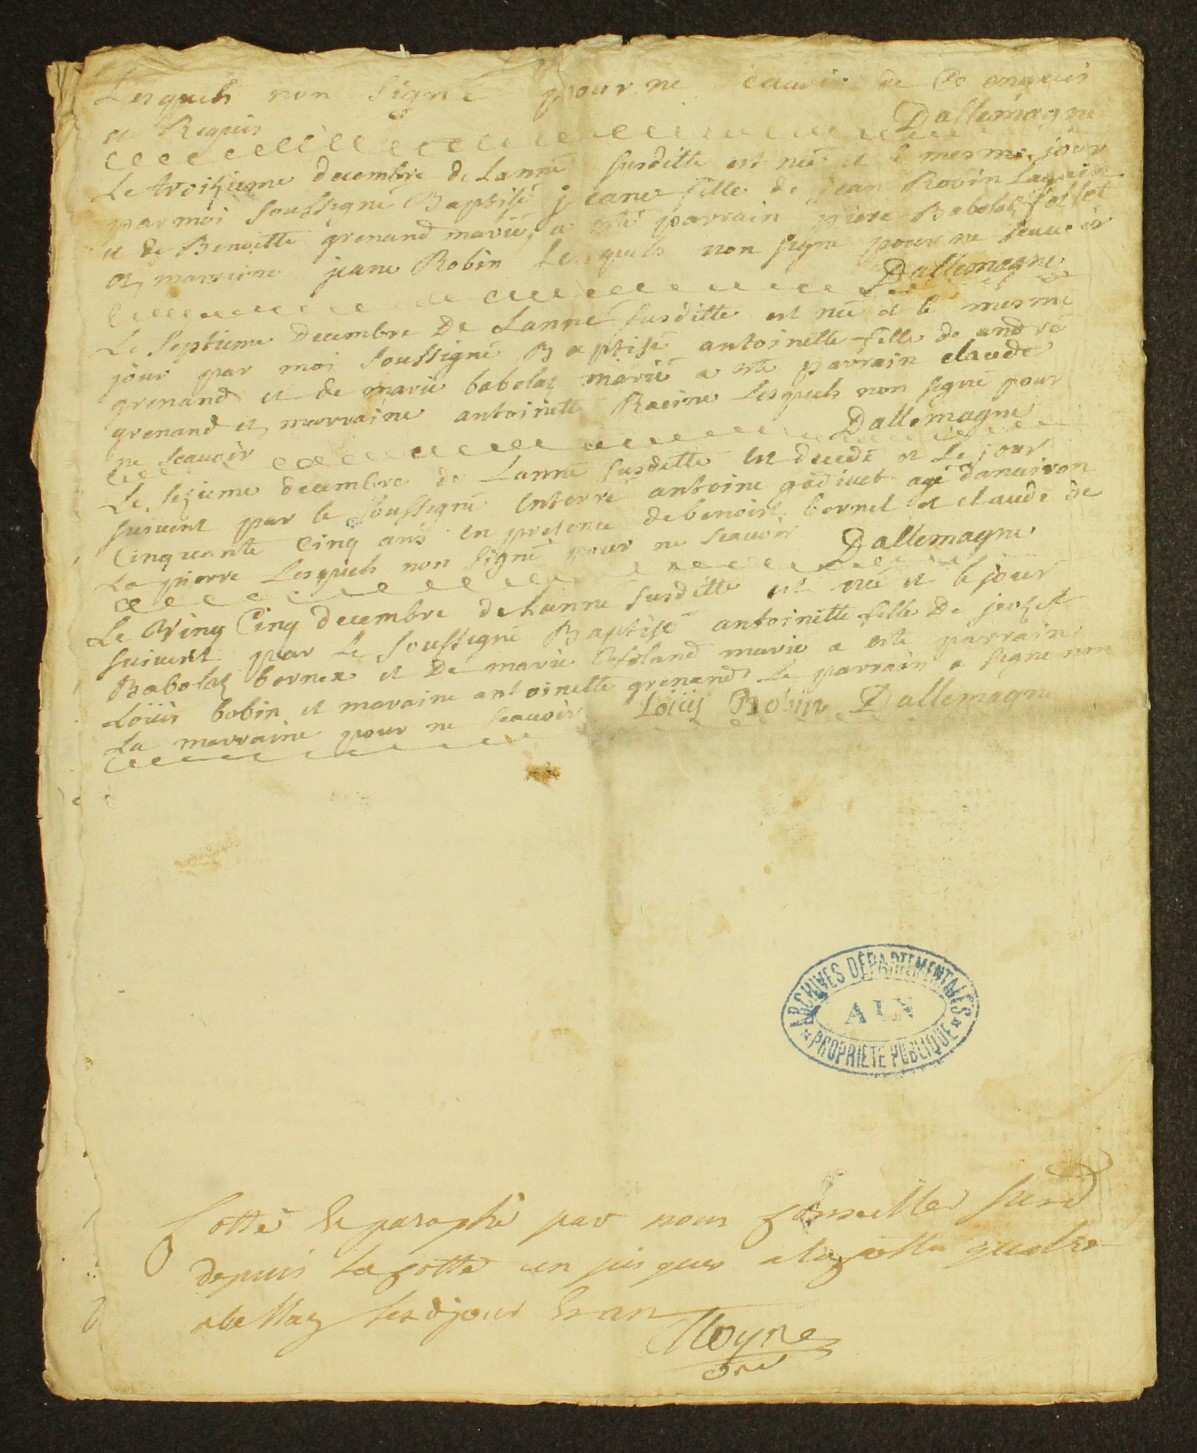 Lesquels non signé pour ne scavoir de ce enquis
et Requis Dallemagne
Le troizieme decembre de Lanné susditte est née et le mesme jour
par moi soussigné Baptisé jeane fille de jean Robin
et de Benoitte grenand mariés a esté parrain piere Babolat
et marraine jeane Robin Lesquels non signé pour ne scavoir
Dallemagne
Le septieme decembre De Lanné susditte est née et le mesme
jour par moi soussigné Baptisé antoinette fille de andré
grenand et de marie babolat mariés a esté parrain claude
grenand et marraine antoinette Racine Lesquels non signé pour
ne scavoir Dallemagne
Le sezieme decembre de Lanné susditte est decedé et Le jour
suivent par le soussigné Enterré antoine godivet agé danviron
Cinquante Cinq ans en presence de benoist bornet et claude de
La pierre Lesquels non signé pour ne scavoir Dallemagne
Le Ving Cinq decembre de Lanné susditte est née et le jour
suivent par Le soussigné Baptisé antoinette fille De joseph
Babolat et De marie mariés a esté parrain
Loüis bobin et maraine antoinette grenand Le parrain a signé non
La marraine pour ne scavoir Loüis Bobin Dallemagne
ARCHIVES DÉPARTEMENTALES
AIN
PROPRIÉTÉ PUBLIQUE
Cotté & paraphé par nous Conseiller susd
depuis La Cotte un jusques a la Cotte quatre
a Bellay Lesd jour & an